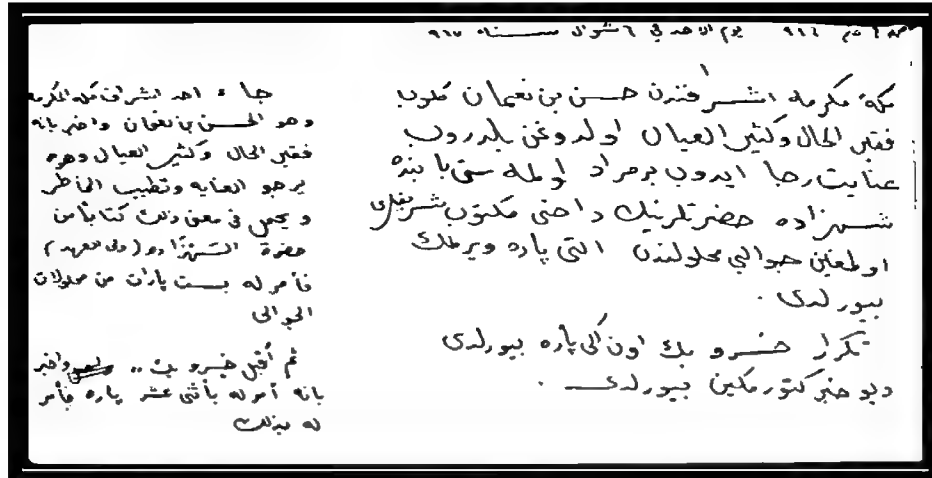 يوم الاحد في ٦ شوال سنه ٩٦٧
مكهٔ مكرمه اشرافندن حسن بن نعمان كلوب
فقير الحال وكثير العيال اولدوغن بلدروب
عنايت رجا ايدوب برمراد اولمه
شهزاده حضرتلرينك داخى مكتوب شريفلرى
اولمغين جوالي محلولندن التى پاره ويرملك
بيورلدى .
تكرار خسرو بك اون اكى پاره بيورلدى
ديو خبر كتورمكين بيورلدى .
جاء احد اشراف مكه المكرمه
وهو الحسن بن نعمان واخبر بانه
فقير الحال وكثير العيال وهو
يرجو العنايه وتطييب الخاطر
و يحمل في معنى ذلك كتابا من
حضرة الشهزاده (ولى العهد)
فأمر له بست پارات من محلولات
الجوالى
ثم أقبل خسرو بك .. واخبر
بانه أمر له بأثنى عشر پاره فأمر
له بذلك